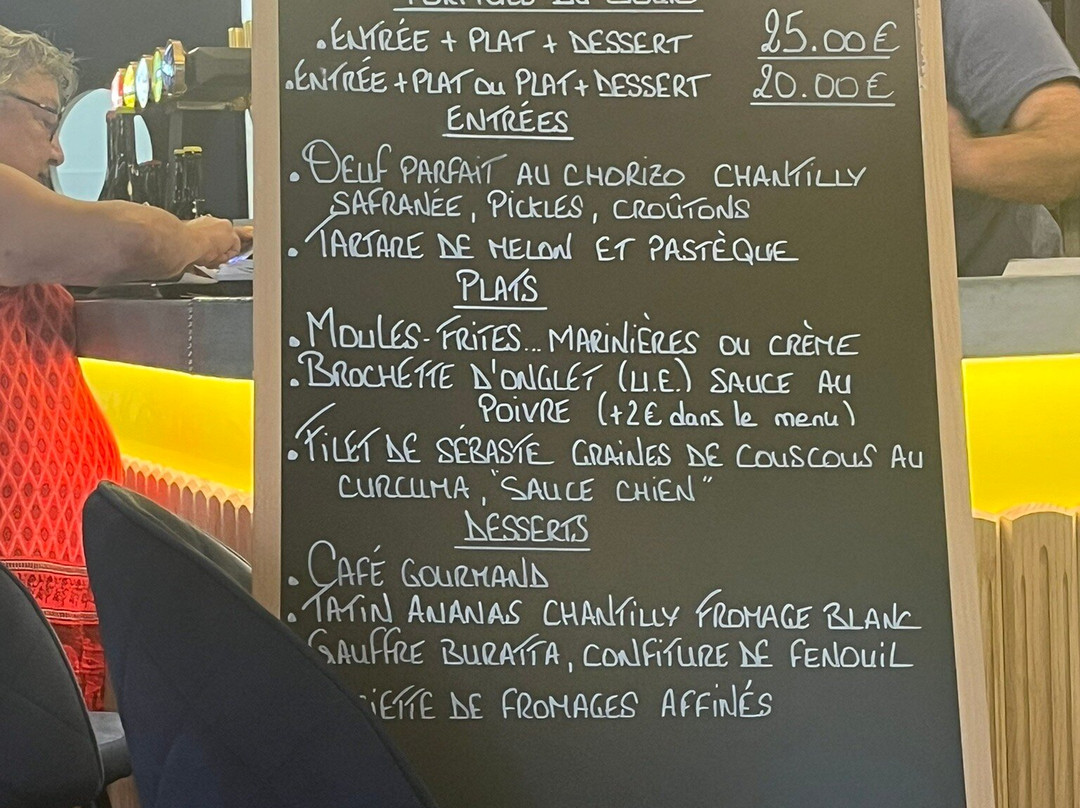 .ENTRÉE + PLAT + DESSERT 25.00€
.ENTRÉE + PLAT OU PLAT + DESSERT 20.00€
ENTRÉES
. OEUF PARFAIT AU CHORIZO CHANTILLY
SAFRANÉE, PICKLES, CROÛTONS
. TARTARE DE MELON ET PASTÈQUE
PLATS
. MOULES-FRITES... MARINIÈRES OU CRÈME
. BROCHETTE D'ONGLET (U.E.) SAUCE AU
POIVRE (+2€ dans le menu)
. FILET DE SÉBASTE GRAINES DE COUSCOUS AU
CURCUMA, "SAUCE CHIEN"
DESSERTS
. CAFÉ GOURMAND
. TATIN ANANAS CHANTILLY FROMAGE BLANC
GAUFFRE BURATTA, CONFITURE DE FENOUIL
IETTE DE FROMAGES AFFINÉS